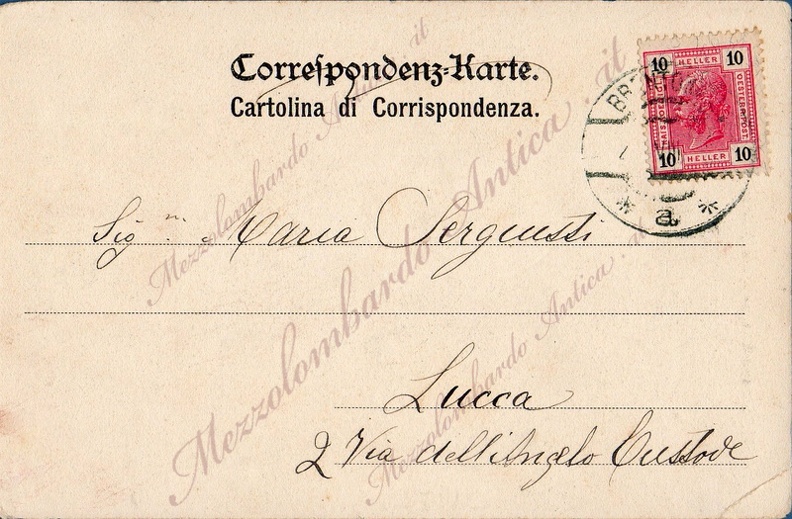 Correspondenz-Karte.
Cartolina di Corrispondenza.
10 HELLER 10
10 HELLER 10
a
Sig.na Maria Sergiusti
Lucca
2 Via dell'Angelo Custode
Mezzolombardo Antica.it
Mezzolombardo Antica.it
Mezzolombardo Antica.it